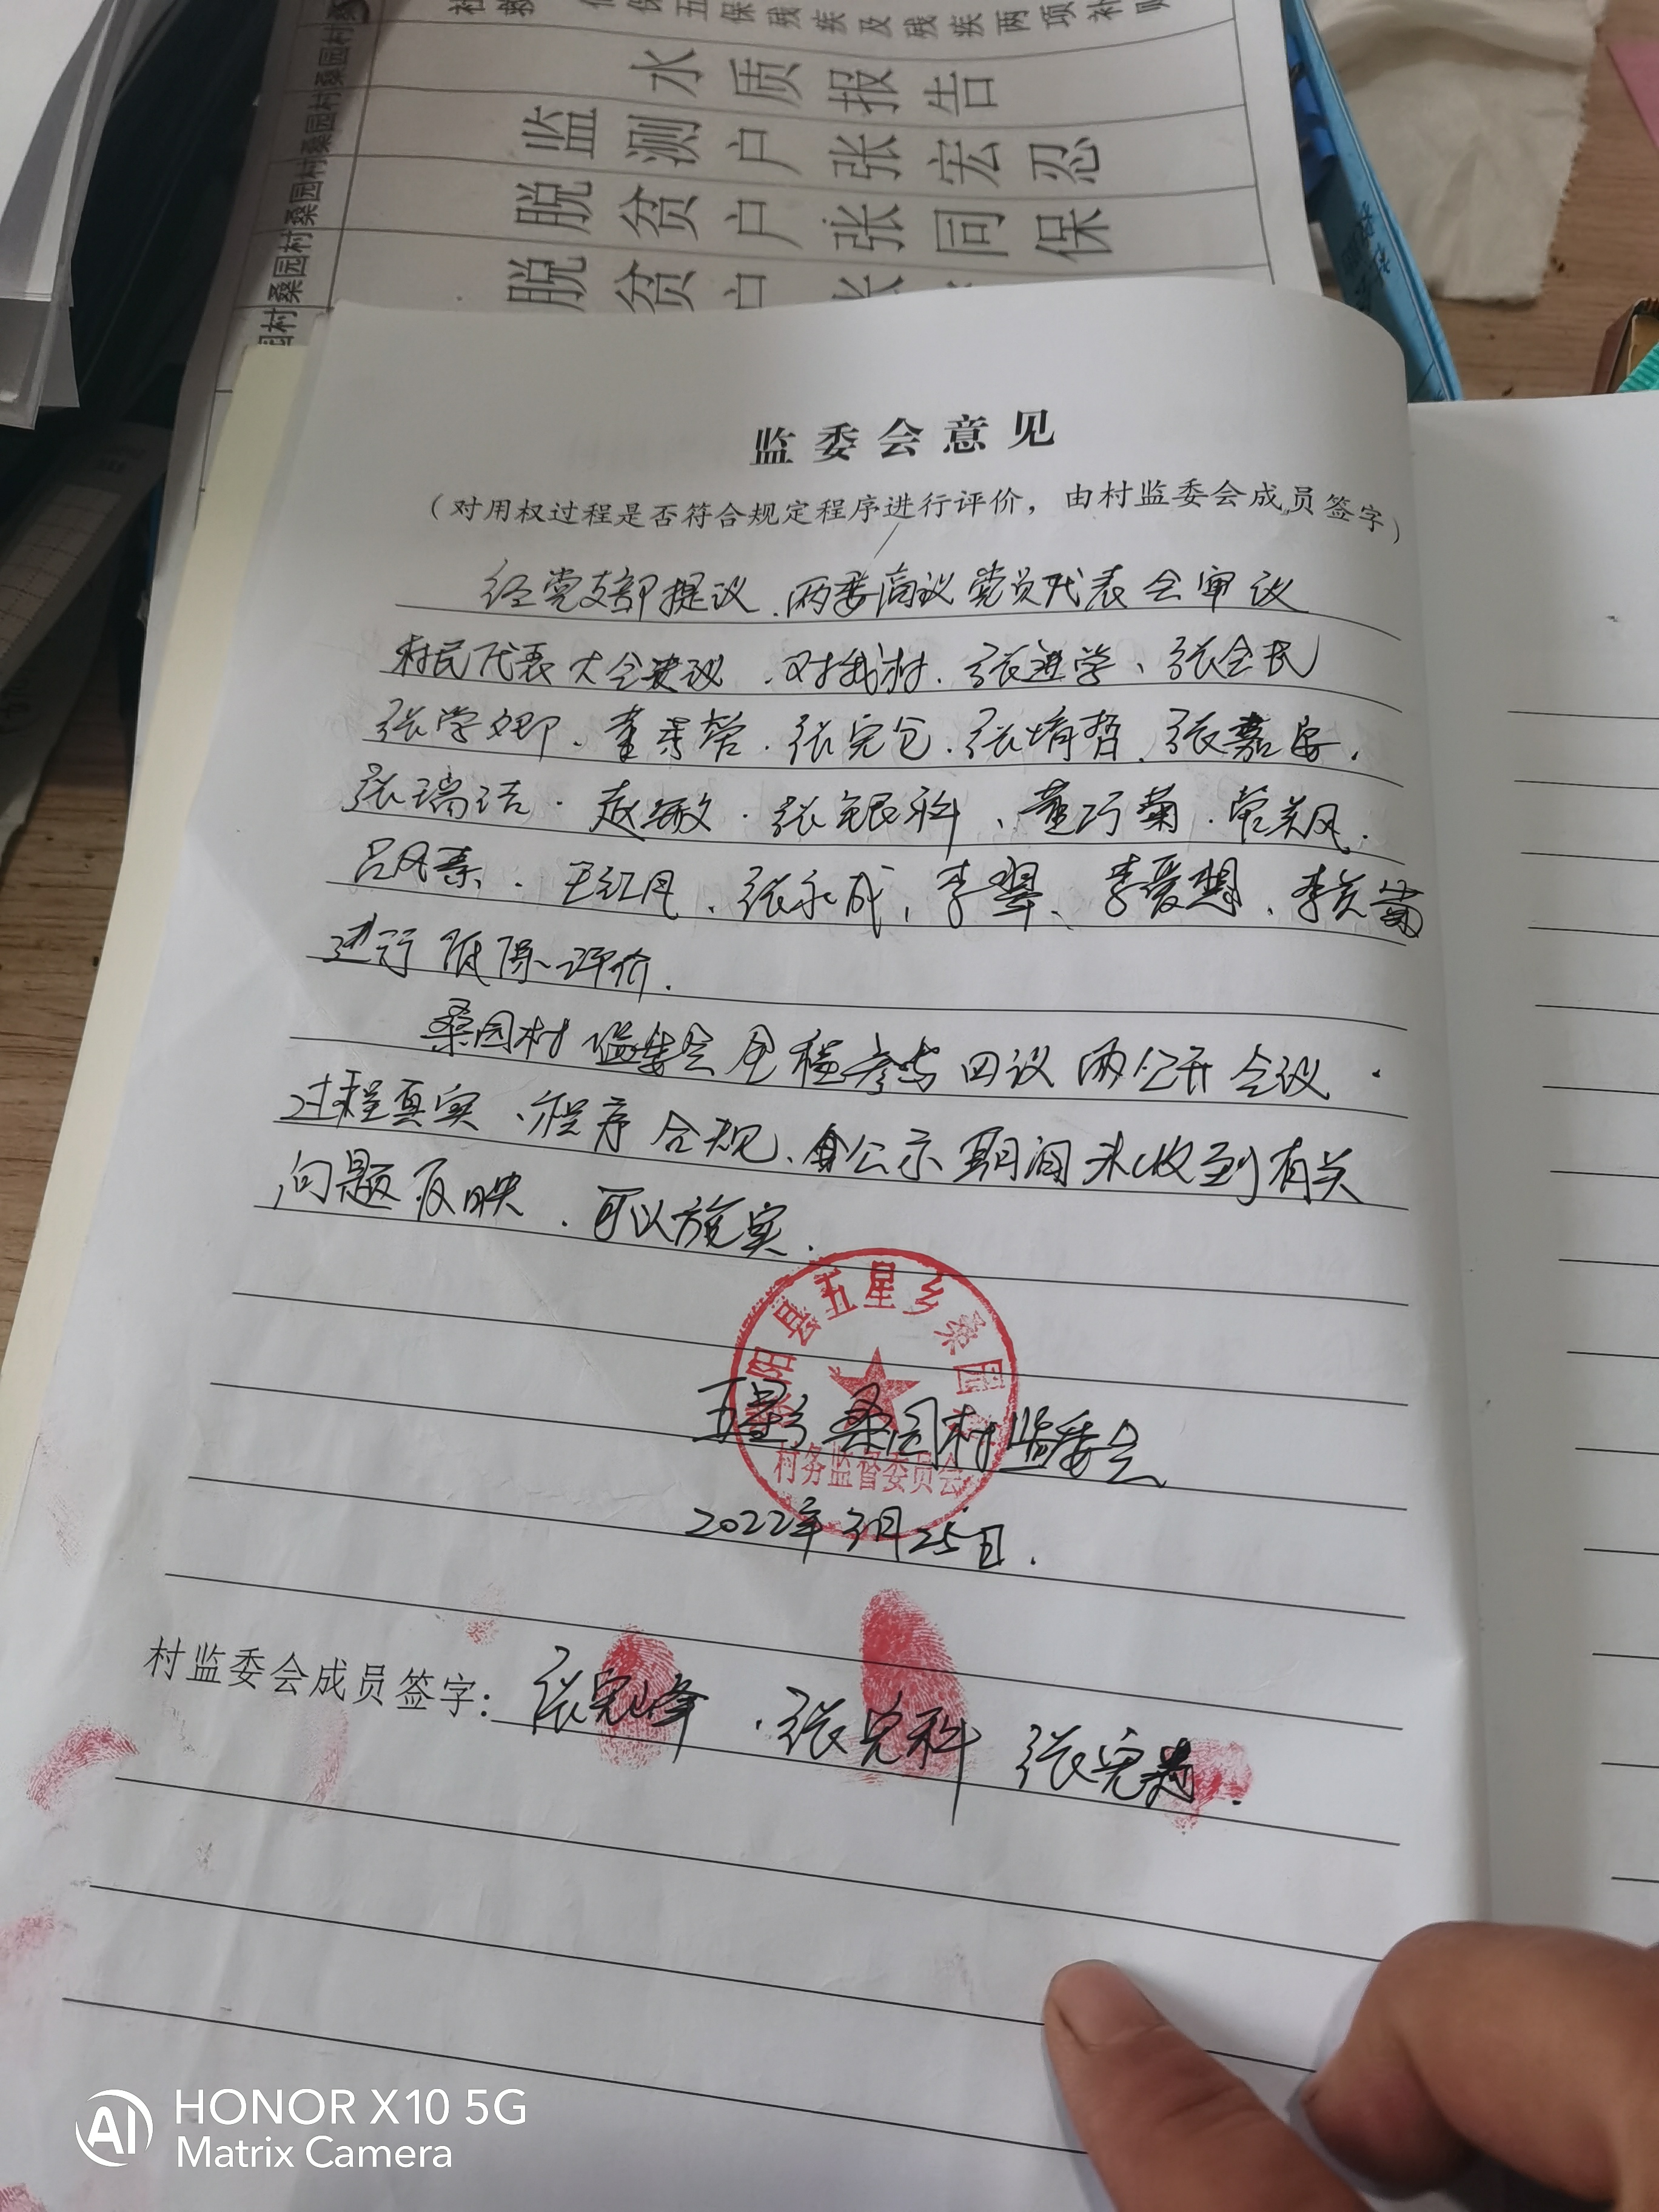 水质报告
监测户张宏忍
脱贫户张同保
脱贫户张
监委会意见
（对用权过程是否符合规定程序进行评价，由村监委会成员签字）
经党支部提议、两委商议党员代表会审议
村民代表大会决议、对我村、张进学、张会民
张学卿、董荣、张完仓、张培哲、张嘉
张瑞洁、赵敏、张银科、董巧菊、
吕风秦、王红凤、张永成、李翠、李爱想、李关菊
进行低保评价.
桑园村监委会全程参与四议两公开会议
过程真实、程序合规、公示期间未收到有关
问题反映、可以施实.
阳县五星乡桑园
村务监督委员会
五星乡桑园村监委会
2022年3月25日.
村监委会成员签字：张完峰、张完科 张完
AI HONOR X10 5G
Matrix Camera